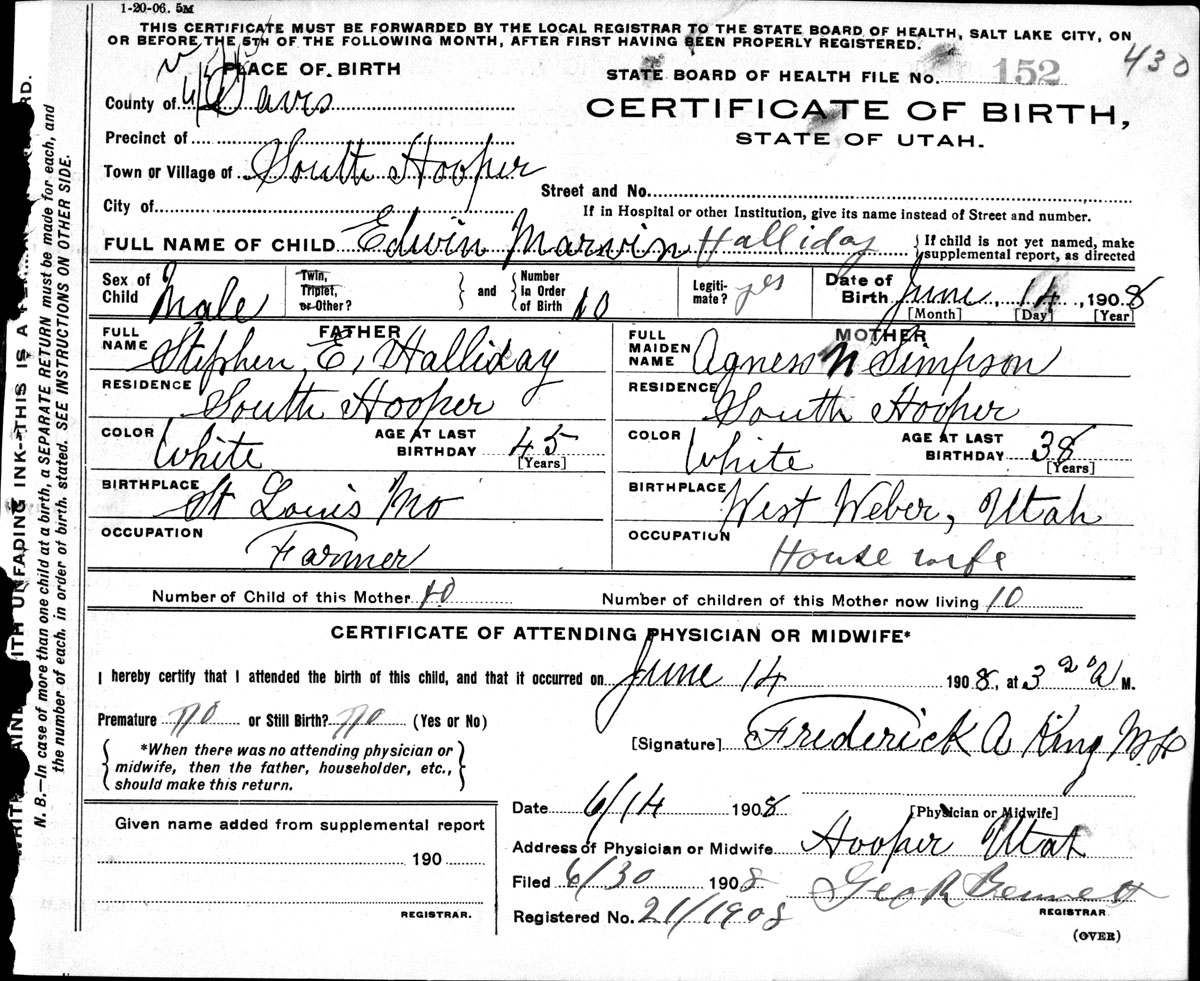 1-20-06. 5M
THIS CERTIFICATE MUST BE FORWARDED BY THE LOCAL REGISTRAR TO THE STATE BOARD OF HEALTH, SALT LAKE CITY, ON
OR BEFORE THE 5TH OF THE FOLLOWING MONTH, AFTER FIRST HAVING BEEN PROPERLY REGISTERED.
430
PLACE OF BIRTH
STATE BOARD OF HEALTH FILE No. 152
County of Davis
CERTIFICATE OF BIRTH,
STATE OF UTAH.
Precinct of
Town or Village of South Hooper
Street and No.
City of
If in Hospital or other Institution, give its name instead of Street and number.
FULL NAME OF CHILD Edwin Marvin Halliday
{If child is not yet named, make
supplemental report, as directed
Sex of Child Male
Twin, Triplet, or Other?
and
Number In Order of Birth 10
Legiti-mate? yes
Date of Birth June 14, 1908
[Month] [Day] [Year]
FATHER
FULL NAME Stephen E. Halliday
RESIDENCE South Hooper
COLOR White AGE AT LAST BIRTHDAY 45 [Years]
BIRTHPLACE St Louis Mo
OCCUPATION Farmer
MOTHER
FULL MAIDEN NAME Agness N Simpson
RESIDENCE South Hooper
COLOR White AGE AT LAST BIRTHDAY 38 [Years]
BIRTHPLACE West Weber, Utah
OCCUPATION House wife
Number of Child of this Mother 10 Number of children of this Mother now living 10
CERTIFICATE OF ATTENDING PHYSICIAN OR MIDWIFE*
I hereby certify that I attended the birth of this child, and that it occurred on June 14 1908, at 3 20 A M.
Premature no or Still Birth? no (Yes or No)
*When there was no attending physician or
midwife, then the father, householder, etc.,
should make this return.
[Signature] Frederick A King M.D.
[Physician or Midwife]
Date 6/14 1908
Address of Physician or Midwife Hooper Utah
Filed 6/30 1908 Geo R Bennett
REGISTRAR
Registered No. 21/1908
(OVER)
Given name added from supplemental report
190
REGISTRAR.
WITH UNFADING INK--THIS IS A
N. B.—In case of more than one child at a birth, a SEPARATE RETURN must be made for each, and
the number of each, in order of birth, stated. SEE INSTRUCTIONS ON OTHER SIDE.